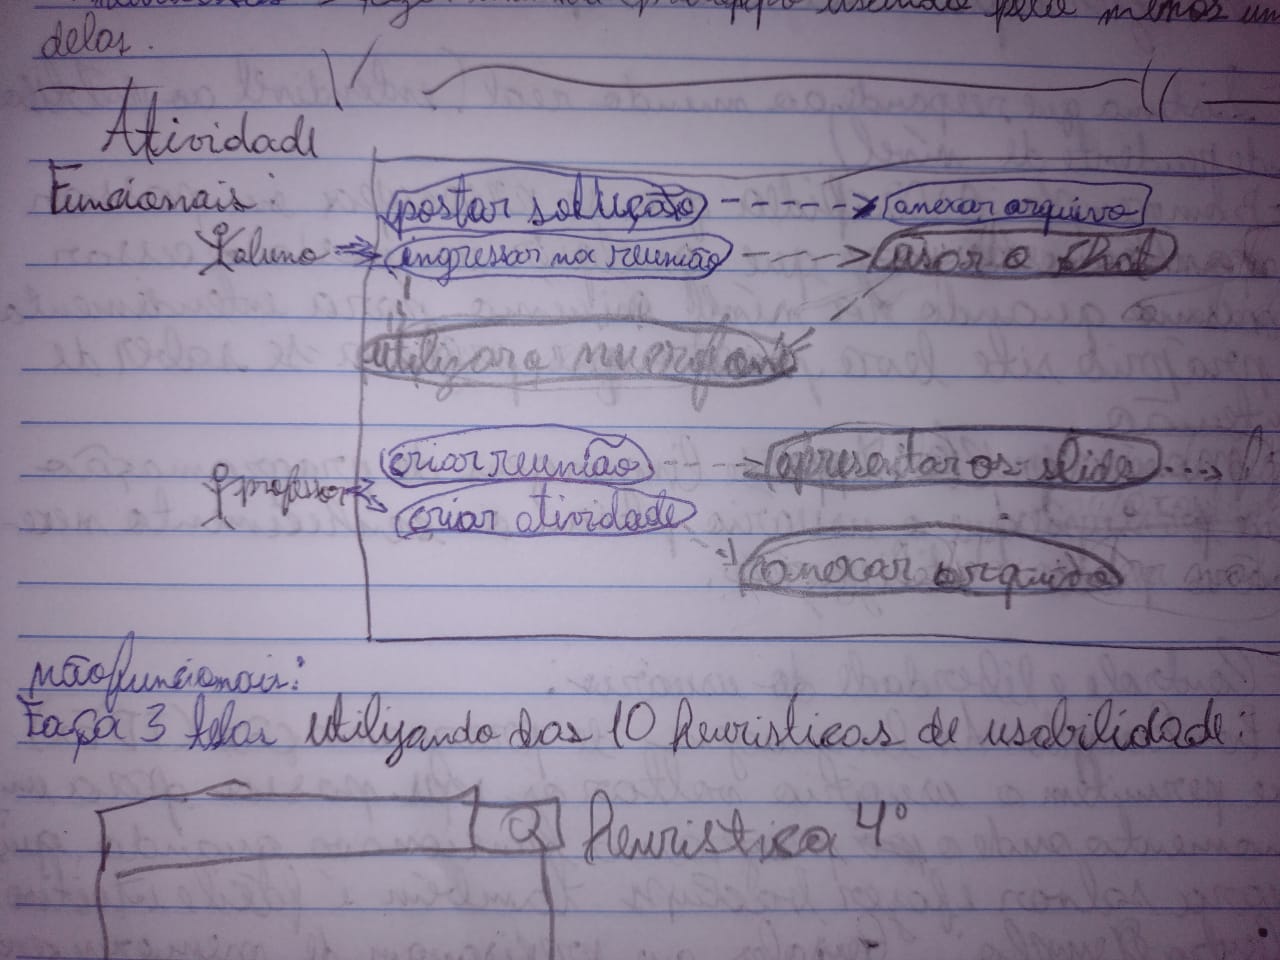 usando pelo menos um
delas.
Atividade
Funcionais:
postar solução anexar arquivo
aluno ingressar na reunião usar o chat
utilizar o microfone
criar reunião apresentar os slide
professor criar atividade
anexar arquivo
não funcionais:
Faça 3 telas utilizando das 10 heuristicas de usabilidade:
Heuristica 4º